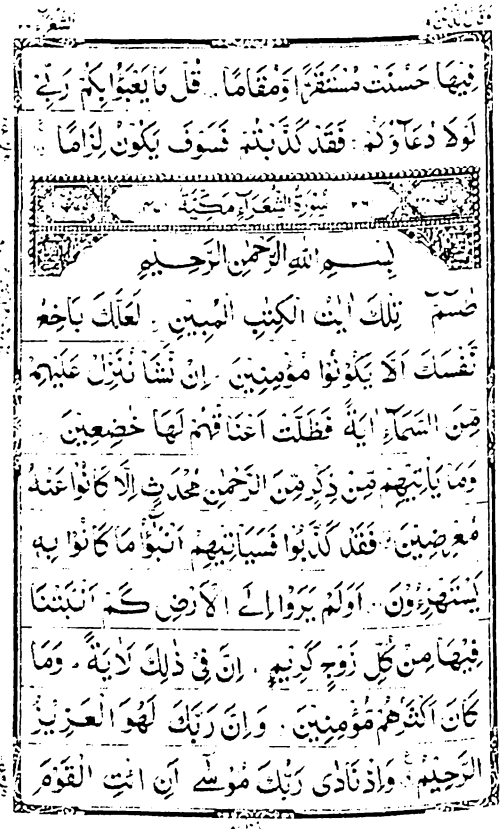 الشعرآء
وقال الذين
فِيْهَا حَسُنَتْ مُسْتَقَرًّا وَّمُقَامًا قُلْ مَا يَعْبَؤُا بِكُمْ رَبِّيْ
لَوْلَا دُعَآؤُكُمْ فَقَدْ كَذَّبْتُمْ فَسَوْفَ يَكُوْنُ لِزَامًا
٢٦ سُوْرَةُ الشُّعَرَآءِ مَكِّيَّةٌ ٤٧
بِسْمِ اللهِ الرَّحْمٰنِ الرَّحِيْمِ
طٰسٓمّٓ تِلْكَ اٰيٰتُ الْكِتٰبِ الْمُبِيْنِ لَعَلَّكَ بَاخِعٌ
نَّفْسَكَ اَلَّا يَكُوْنُوْا مُؤْمِنِيْنَ اِنْ نَّشَاْ نُنَزِّلْ عَلَيْهِمْ
مِّنَ السَّمَآءِ اٰيَةً فَظَلَّتْ اَعْنَاقُهُمْ لَهَا خٰضِعِيْنَ
وَمَا يَاْتِيْهِمْ مِّنْ ذِكْرٍ مِّنَ الرَّحْمٰنِ مُحْدَثٍ اِلَّا كَانُوْا عَنْهُ
مُعْرِضِيْنَ فَقَدْ كَذَّبُوْا فَسَيَاْتِيْهِمْ اَنْۢبٰٓؤُا مَا كَانُوْا بِهٖ
يَسْتَهْزِءُوْنَ اَوَلَمْ يَرَوْا اِلَى الْاَرْضِ كَمْ اَنْۢبَتْنَا
فِيْهَا مِنْ كُلِّ زَوْجٍ كَرِيْمٍ اِنَّ فِيْ ذٰلِكَ لَاٰيَةً وَمَا
كَانَ اَكْثَرُهُمْ مُّؤْمِنِيْنَ وَاِنَّ رَبَّكَ لَهُوَ الْعَزِيْزُ
الرَّحِيْمُ وَاِذْ نَادٰى رَبُّكَ مُوْسٰٓى اَنِ ائْتِ الْقَوْمَ